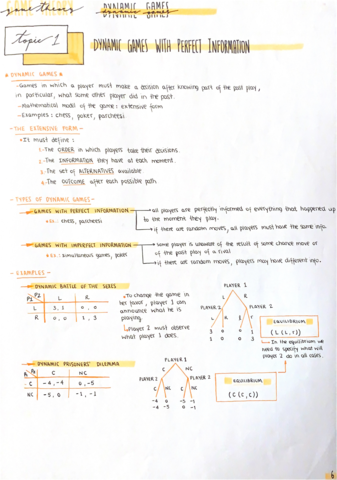 DYNAMIC GAMES
topic 1
DYNAMIC GAMES WITH PERFECT INFORMATION
DYNAMIC GAMES
- Games in which a player must make a decision after knowing part of the past play,
in particular, what some other player did in the past.
- Mathematical model of the game: extensive form
- Examples: chess, poker, parcheesi
- THE EXTENSIVE FORM -
It must define:
1. The ORDER in which players take their decisions.
2. The INFORMATION they have at each moment.
3. The set of ALTERNATIVES available.
4. The OUTCOME after each possible path.
- TYPES OF DYNAMIC GAMES -
GAMES WITH PERFECT INFORMATION → all players are perfectly informed of everything that happened up
to the moment they play.
Ex.: chess, parcheesi
→ if there are random moves, all players must have the same info.
GAMES WITH IMPERFECT INFORMATION → some player is unaware of the result of some chance move or
of the past play of a rival
Ex.: simultaneous games, poker
→ if there are random moves, players may have different info.
- EXAMPLES -
DYNAMIC BATTLE OF THE SEXES
P1 P2 L R
L 3, 1 0, 0
R 0, 0 1, 3
To change the game in
her favor, player 1 can
announce what he is
playing.
Player 2 must observe
what player 1 does.
PLAYER 1
L R
PLAYER 2 PLAYER 2
3 0 0 1
1 0 0 3
EQUILIBRIUM
(L (L, r))
In the equilibrium we
need to specify what will
player 2 do in all cases.
DYNAMIC PRISONERS' DILEMMA
C NC
C -4, -4 0, -5
NC -5, 0 -1, -1
PLAYER 1
C NC
PLAYER 2 PLAYER 2
C NC C NC
-4 0 -5 -1
-4 -5 0 -1
EQUILIBRIUM
(C (C, C))
6